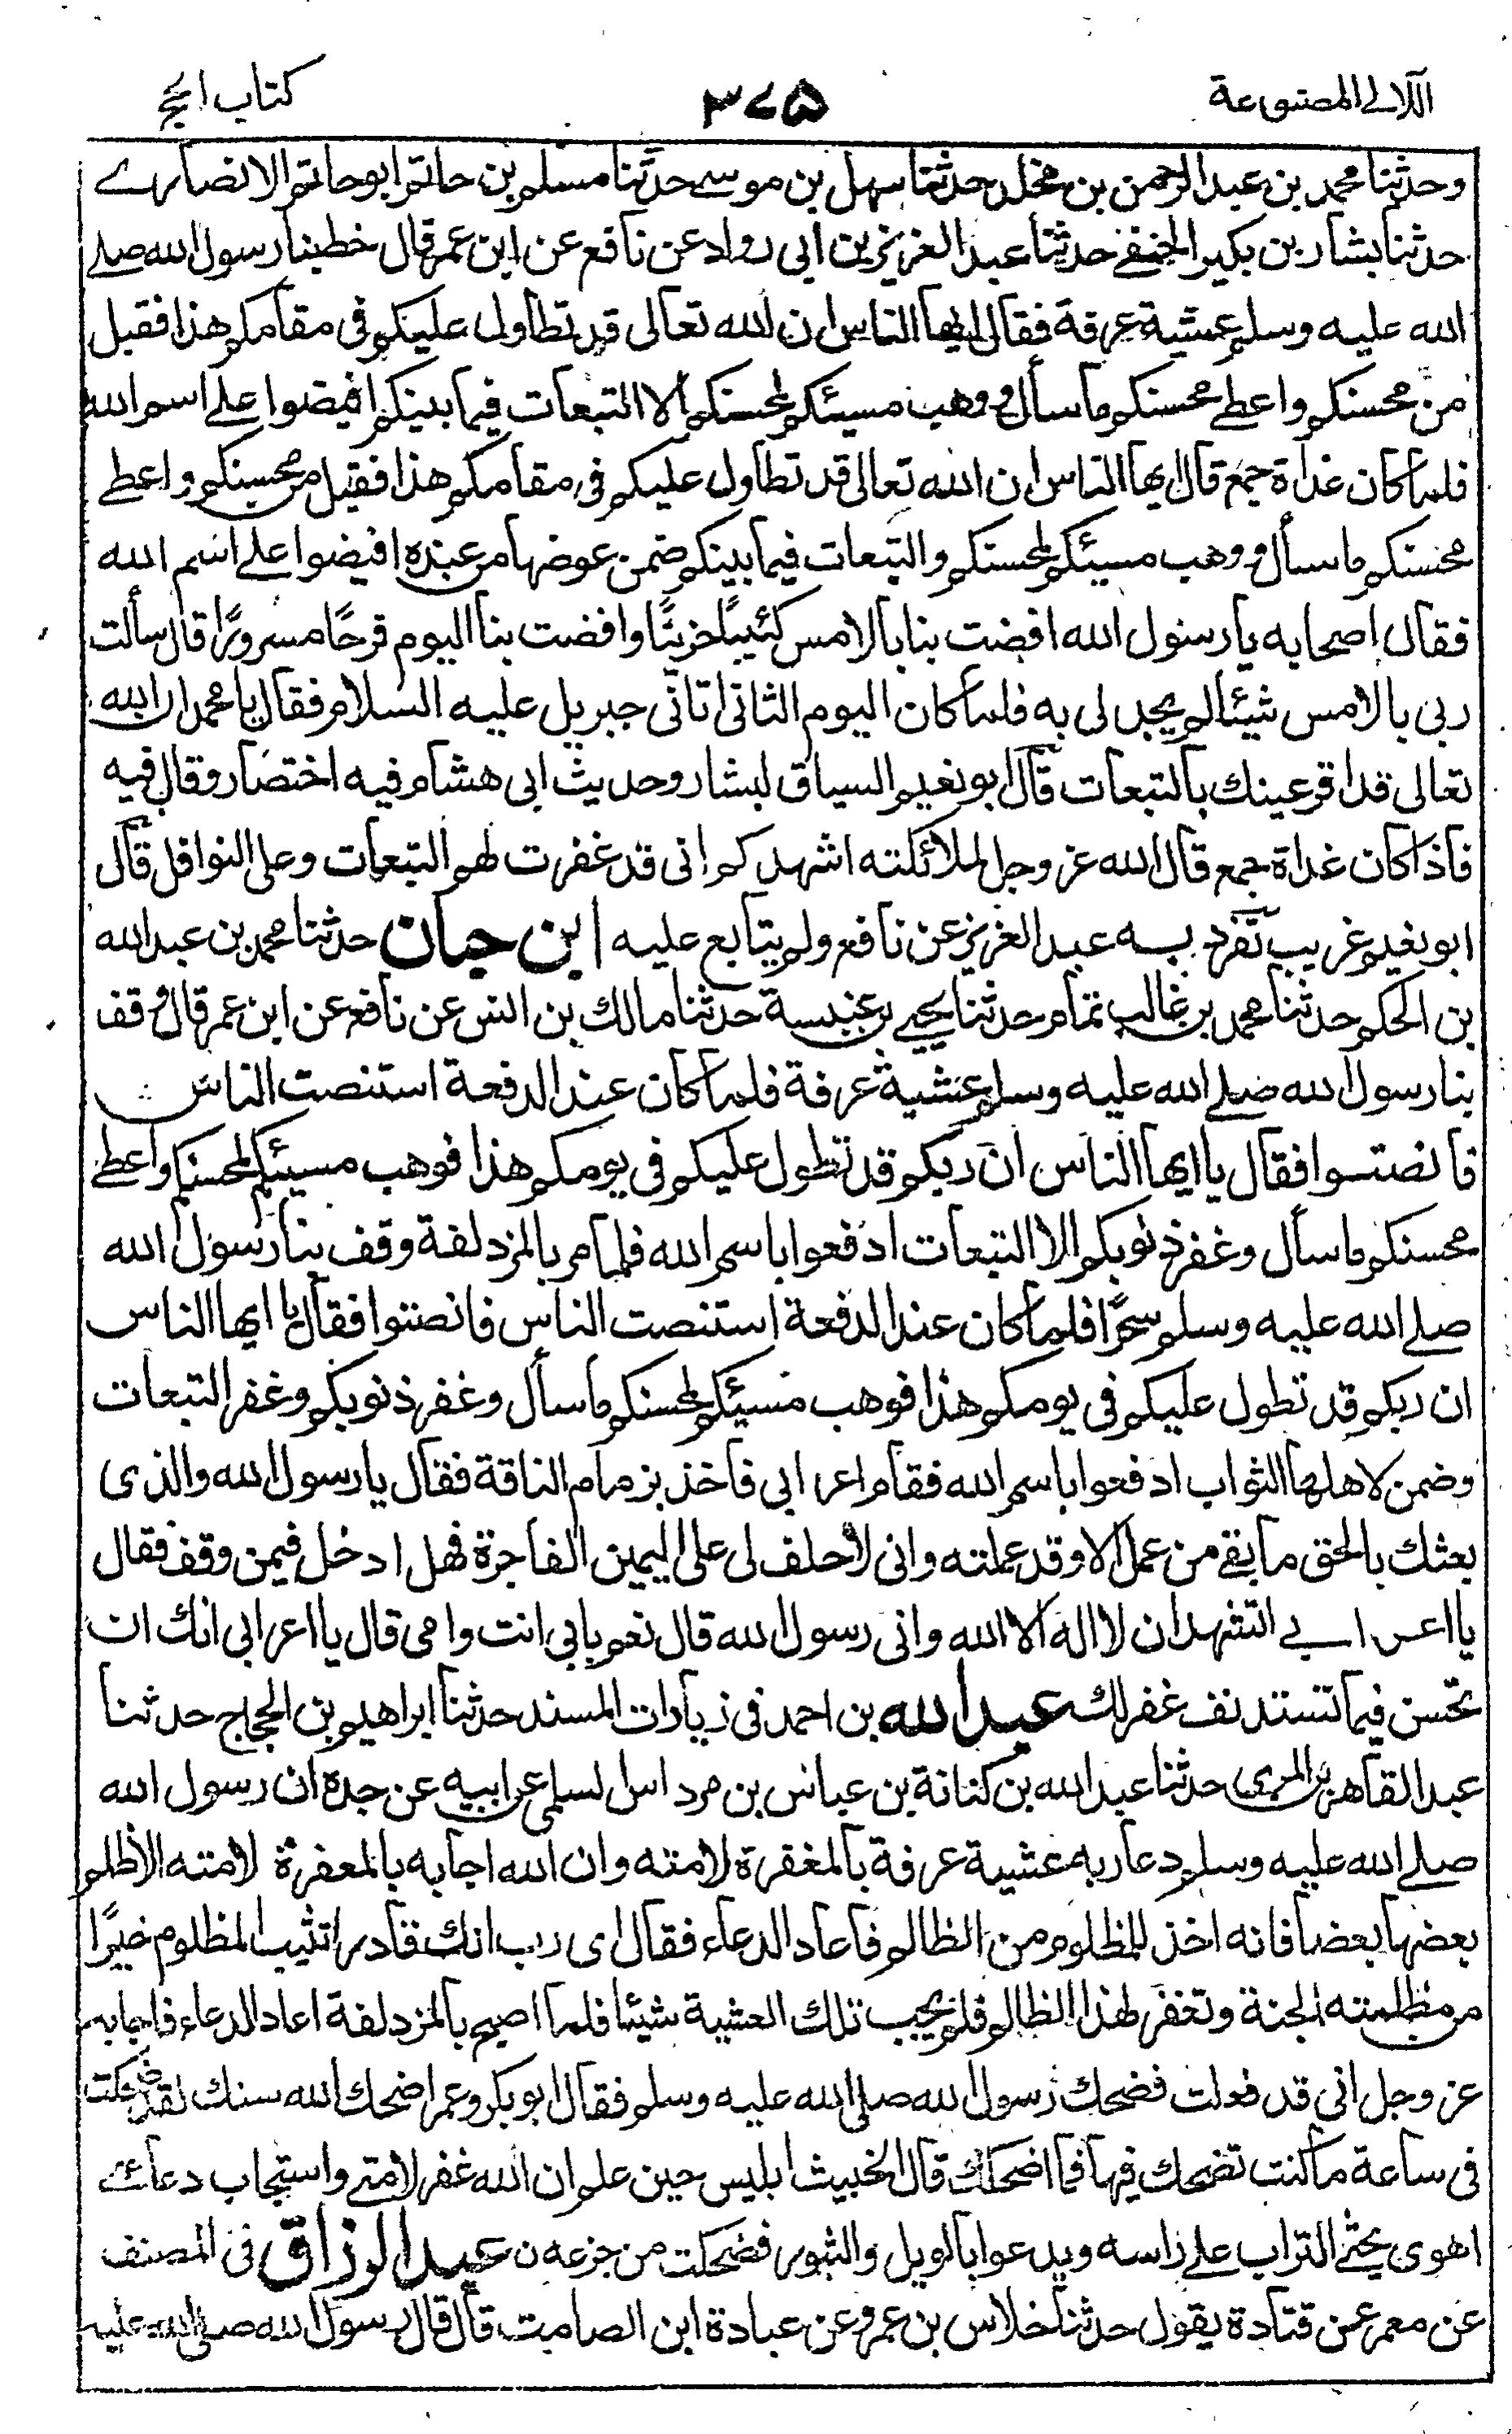 اللآلي المصنوعة
۳۷۵
كتاب الحج
وحدثنا محمد بن عبد الرحمن بن مخلد حدثنا سهل بن موسے حدثنا مسلم بن حاتم ابو حاتم الانصارے
حدثنا بشار بن بكير الحنفے حدثنا عبد العزيز بن ابي رواد عن نافع عن ابن عمر قال خطبنا رسول الله صلے
الله عليه وسلم عشية عرفة فقال ايها الناس ان الله تعالى قد تطاول عليكم في مقامكم هذا فقبل
من محسنكم واعطے محسنكم ما سأل ووهب مسيئكم لمحسنكم الا التبعات فيما بينكم افيضوا علے اسم الله
فلما كان غداة جمع قال ايها الناس ان الله تعالى قد تطاول عليكم في مقامكم هذا فقبل من محسنكم واعطے
محسنكم ما سأل ووهب مسيئكم لمحسنكم والتبعات فيما بينكم ضمن عوضها من عنده افيضوا علے اسم الله
فقال اصحابه يا رسول الله افضت بنا بالامس كئيبًا حزينًا وافضت بنا اليوم فرحًا مسرورًا قال سألت
ربي بالامس شيئا لم يجد لي به فلما كان اليوم الثاني اتاني جبريل عليه السلام فقال يا محمد ان الله
تعالى قد اقر عينك بالتبعات قال ابو نعيم السياق لبشار وحديث ابي هشام فيه اختصار وقال فيه
فاذا كان غداة جمع قال الله عز وجل لملائكته اشهدكم اني قد غفرت لهم التبعات وعلى النوافل قال
ابو نعيم غريب تفرد به عبد العزيز عن نافع ولم يتابع عليه ابن حبان حدثنا محمد بن عبد الله
بن الحكم حدثنا محمد بن غالب تمام حدثنا يحيے بن عنبسة حدثنا مالك بن انس عن نافع عن ابن عمر قال وقف
بنا رسول الله صلے الله عليه وسلم عشية عرفة فلما كان عند الدفعة استنصت الناس
فانصتوا فقال يا ايها الناس ان ربكم قد تطول عليكم في يومكم هذا فوهب مسيئكم لمحسنكم واعطے
محسنكم ما سأل وغفر ذنوبكم الا التبعات ادفعوا باسم الله فلما مر بالمزدلفة وقف بنا رسول الله
صلے الله عليه وسلم سحرًا فلما كان عند الدفعة استنصت الناس فانصتوا فقال يا ايها الناس
ان ربكم قد تطول عليكم في يومكم هذا فوهب مسيئكم لمحسنكم ما سأل وغفر ذنوبكم وغفر التبعات
وضمن لاهلها الثواب ادفعوا باسم الله فقام اعرابي فاخذ بزمام الناقة فقال يا رسول الله والذى
بعثك بالحق ما بقے من عمل الا وقد عملته واني لأحلف لي على اليمين الفاجرة فهل ادخل فيمن وقف فقال
يا اعرابے اتشهد ان لا اله الا الله واني رسول الله قال نعم بابي انت وامي قال يا اعرابي انك ان
تحسن فيما تستدنف غفر لك عبد الله بن احمد في زيادات المسند حدثنا ابراهيم بن الحجاج حدثنا
عبد القاهر بن المرى حدثنا عبد الله بن كنانة بن عباس بن مرداس السلمي عن ابيه عن جده ان رسول الله
صلے الله عليه وسلم دعا ربه عشية عرفة بالمغفرة لامته وان الله اجابه بالمعفرة لامته الا ظلم
بعضها بعضا فانه اخذ للمظلوم من الظالم فاعاد الدعاء فقال اى رب انك قادر ا تثيب المظلوم خيرًا
من مظلمته الجنة وتغفر لهذا الظالم فلم يجب تلك العشية شيئا فلما اصبح بالمزدلفة اعاد الدعاء فاجابه
عز وجل اني قد فعلت فضحك رسول الله صلى الله عليه وسلم فقال ابو بكر وعمر اضحك الله سنك لقد ضحكت
في ساعة ما كنت تضحك فيها فما اضحكك قال الخبيث ابليس حين علم ان الله غفر لامتے واستجاب دعائے
اهوى يحثے التراب علے راسه ويدعو بالويل والثبور فضحكت من جزعه ن عبد الرزاق في المصنف
عن معمر عمن قتادة يقول حدثنا خلاس بن عمرو عن عبادة ابن الصامت قال قال رسول الله صلى الله عليه